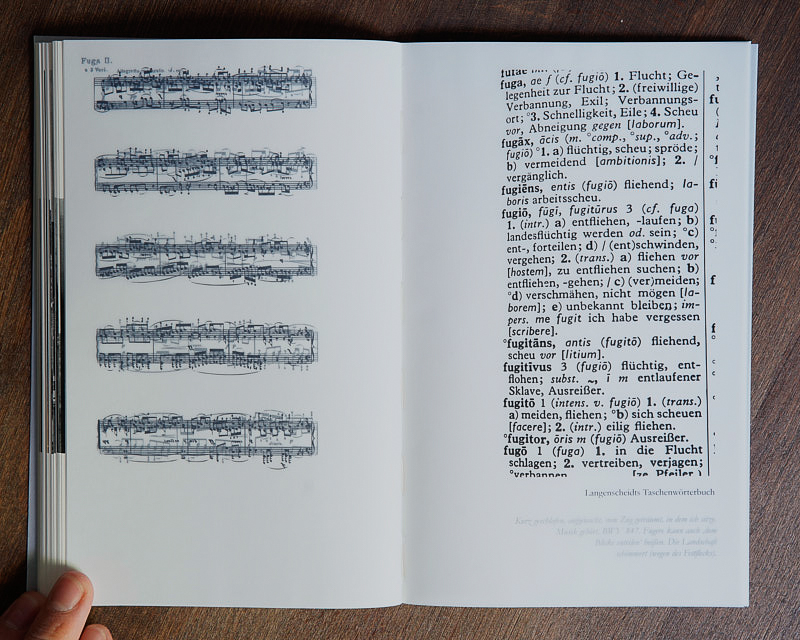 Fuga II.
a 3 Voci.
fuga, ae f (cf. fugiō) 1. Flucht; Ge-
legenheit zur Flucht; 2. (freiwillige)
Verbannung, Exil; Verbannungs-
ort; °3. Schnelligkeit, Eile; 4. Scheu
vor, Abneigung gegen [laborum].
fugāx, ācis (m. °comp., °sup., °adv.;
fugiō) °1. a) flüchtig, scheu; spröde;
b) vermeidend [ambitionis]; 2. /
vergänglich.
fugiēns, entis (fugiō) fliehend; la-
boris arbeitsscheu.
fugiō, fūgī, fugitūrus 3 (cf. fuga)
1. (intr.) a) entfliehen, -laufen; b)
landesflüchtig werden od. sein; °c)
ent-, forteilen; d) / (ent)schwinden,
vergehen; 2. (trans.) a) fliehen vor
[hostem], zu entfliehen suchen; b)
entfliehen, -gehen; / c) (ver)meiden;
°d) verschmähen, nicht mögen [la-
borem]; e) unbekannt bleiben; im-
pers. me fugit ich habe vergessen
[scribere].
°fugitāns, antis (fugitō) fliehend,
scheu vor [litium].
fugitīvus 3 (fugiō) flüchtig, ent-
flohen; subst. ~, ī m entlaufener
Sklave, Ausreißer.
fugitō 1 (intens. v. fugiō) 1. (trans.)
a) meiden, fliehen; °b) sich scheuen
[facere]; 2. (intr.) eilig fliehen.
°fugitor, ōris m (fugiō) Ausreißer.
fugō 1 (fuga) 1. in die Flucht
schlagen; 2. vertreiben, verjagen;
°verbannen [ze Pfeiler)
Langenscheidts Taschenwörterbuch
Kurz geschlafen, aufgewacht, vom Zug geträumt, in dem ich sitze.
Musik gehört. BWV 847. Fugen kann auch dem
Blicke enteilen' heißen. Die Landschaft
schimmert (wegen des Fettflecks).